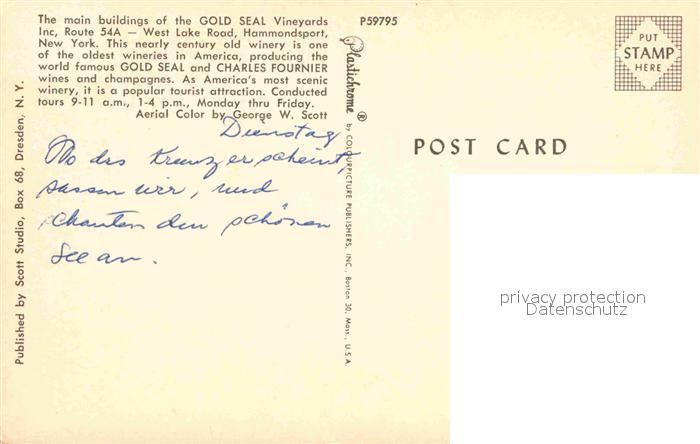 The main buildings of the GOLD SEAL Vineyards
Inc, Route 54A — West Lake Road, Hammondsport,
New York. This nearly century old winery is one
of the oldest wineries in America, producing the
world famous GOLD SEAL and CHARLES FOURNIER
wines and champagnes. As America's most scenic
winery, it is a popular tourist attraction. Conducted
tours 9-11 a.m., 1-4 p.m., Monday thru Friday.
Aerial Color by George W. Scott
Dienstag
Wo das Kreuz erscheint,
sassen wir, und
schauten den schönen
See an.
Published by Scott Studio, Box 68, Dresden, N. Y.
P59795
Plastichrome ® by COLOURPICTURE PUBLISHERS, INC., Boston 30, Mass., U.S.A.
PUT
STAMP
HERE
POST CARD
privacy protection
Datenschutz